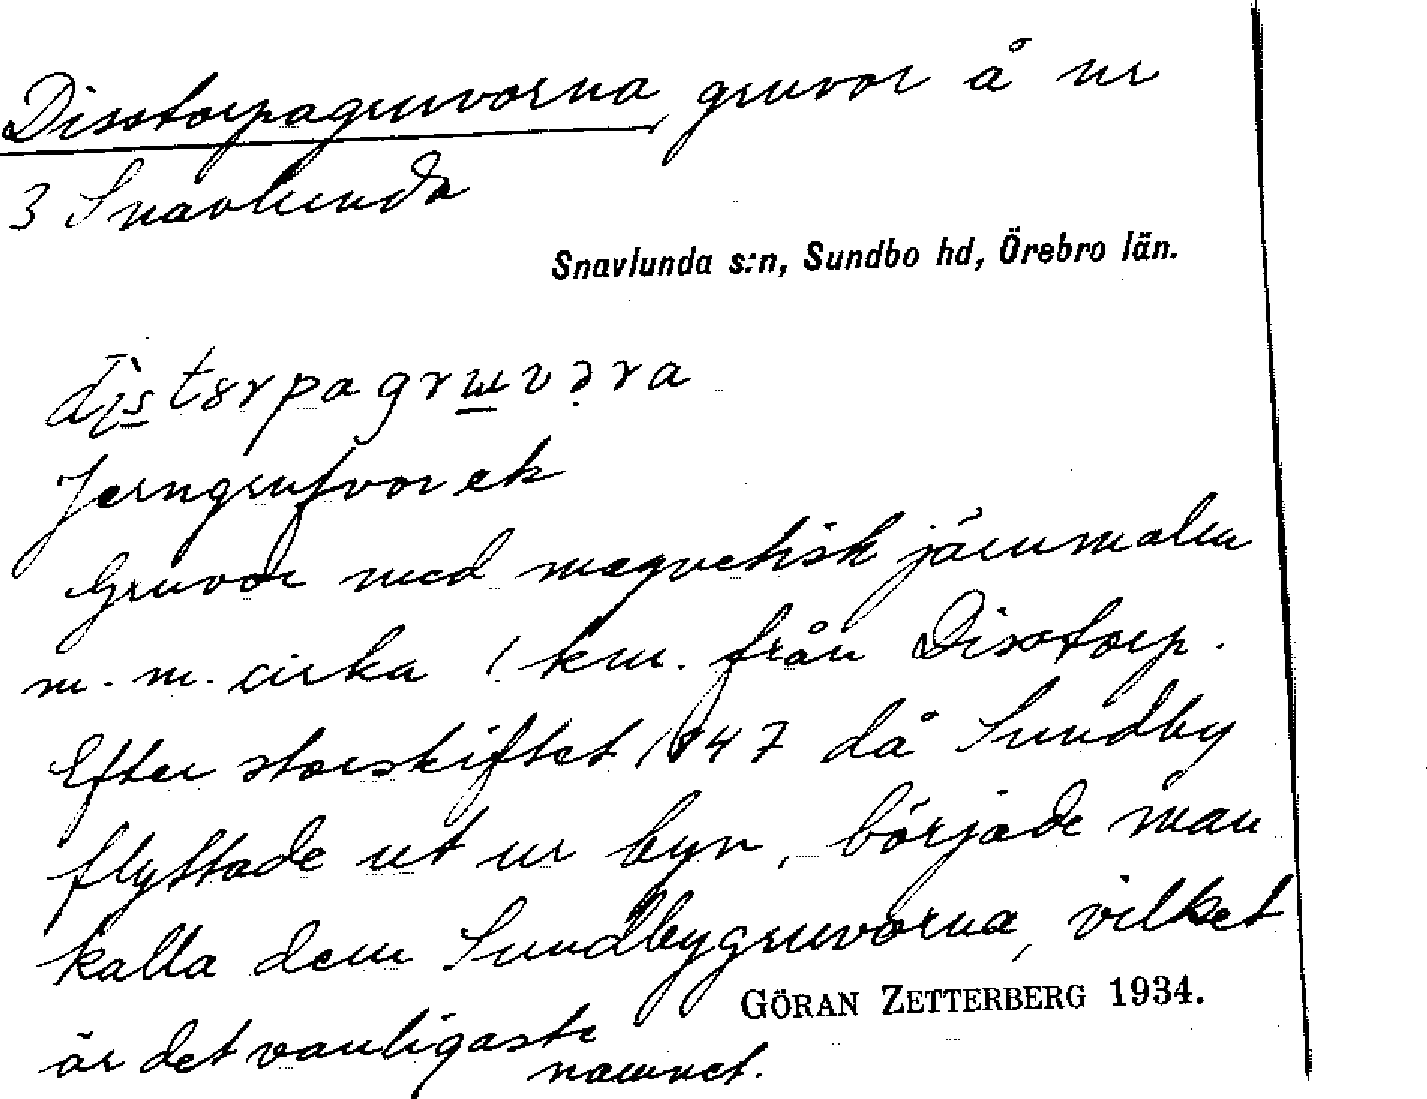 Disstorpagruvorna, gruvor å nr
3 Snavlunda
Snavlunda s:n, Sundbo hd, Örebro län.
Jerngrufvor ek
Gruvor med magnetisk järnmalm
m. m. cirka 1 km. från Disstorp.
Efter storskiftet 1847 då Sundby
flyttade ut ur byn, började man
kalla dem Sundbygruvorna, vilket
är det vanligaste
namnet.
GÖRAN ZETTERBERG 1934.